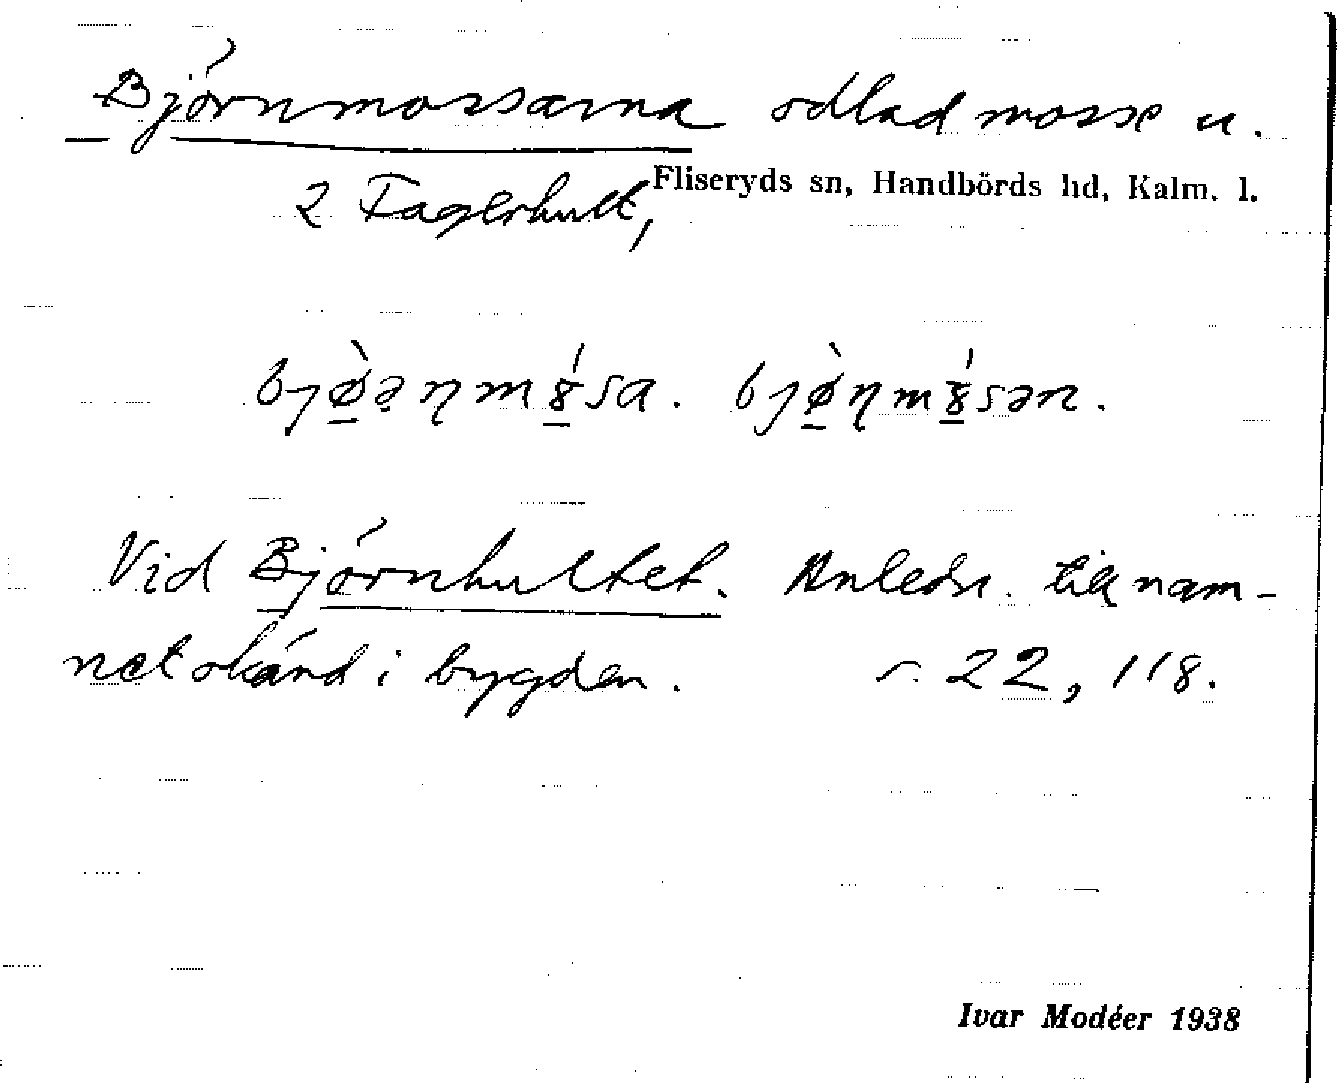 Björnmossarna odlad mosse u.
2 Fagerhult, Fliseryds sn, Handbörds hd, Kalm. l.
Vid Björnhultet. Anledn. till nam-
net okänd i bygden. s. 22, 118.
Ivar Modéer 1938